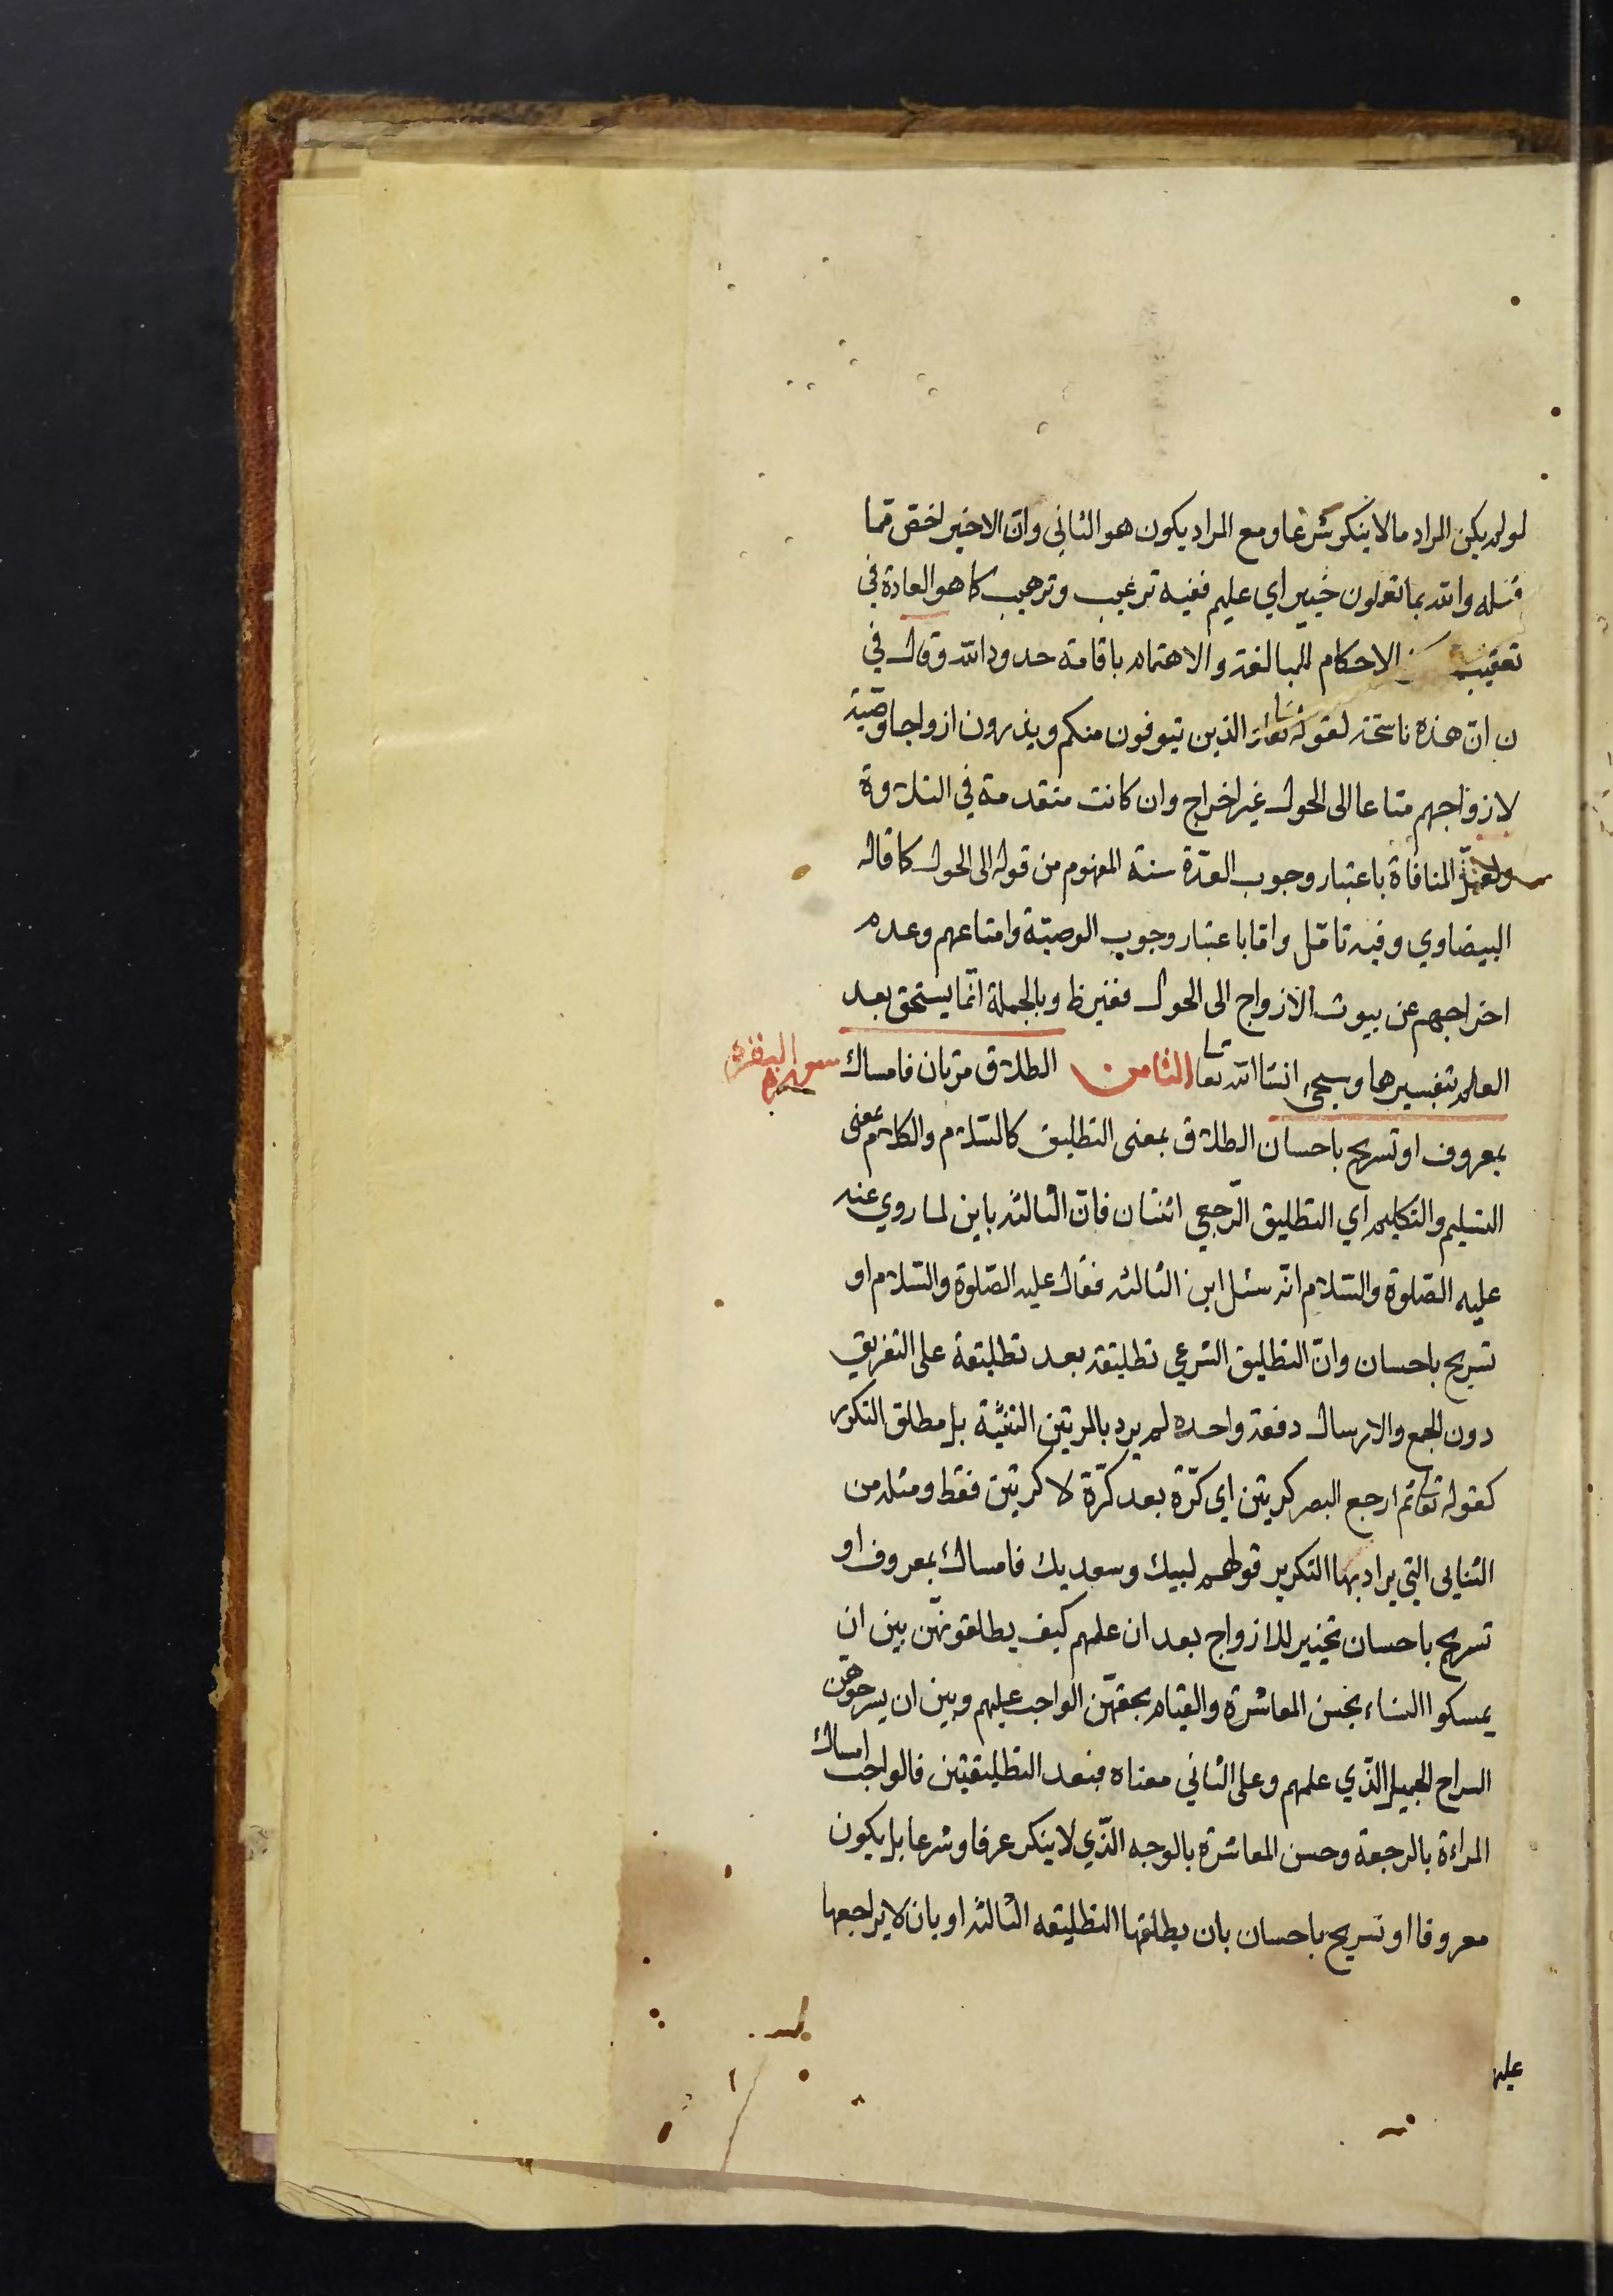 لو لم يكن المراد ما لا ينكر شرعا ومع المراد يكون هو الثاني وان الاخير اخص مما
قبله والله بما تعملون خبير اي عليم ففيه ترغيب وترهيب كما هو العادة في
تعقيب الاحكام للمبالغة والاهتمام باقامة حدود الله وقال في
ن ان هذه ناسخة لقوله تعالى الذين يتوفون منكم ويذرون ازواجا وصية
لازواجهم متاعا الى الحول غير اخراج وان كانت متقدمة في التلاوة
ولعل المنافاة باعتبار وجوب العدّة سنة المفهوم من قوله الى الحول كما قاله
البيضاوي وفيه تامّل وامّا باعتبار وجوب الوصيّة وامتاعهم وعدم
اخراجهم عن بيوت الازواج الى الحول فغير ظ وبالجملة انّما يستحق بعد
العلم بتفسيرها وسيجيء انشا الله تعا الثامن الطلاق مرّتان فامساك
سورة البقره
بمعروف او تسريح باحسان الطلاق بمعنى التطليق كالسّلام والكلام بمعنى
التسليم والتكليم اي التطليق الرّجعي اثنتان فانّ الثالثه باين لما روي عنه
عليه الصّلوة والسّلام انّه سئل اين الثالثه فقال عليه الصّلوة والسّلام او
تسريح باحسان وانّ التطليق الشرعي تطليقة بعد تطليقة على التفريق
دون الجمع والارسال دفعة واحده لم يرد بالمرتين التثنية بل مطلق التكرر
كقوله تعا ثم ارجع البصر كرتين اي كرّة بعد كرّة لا كرتين فقط ومثله من
الثنايى التي يراد بها التكرير قولهم لبيك وسعديك فامساك بمعروف او
تسريح باحسان تخيير للازواج بعد ان علمهم كيف يطلقونهّن بين ان
يمسكوا النساء بحسن المعاشرة والقيام بحقهّن الواجب عليهم وبين ان يسرحوهّن
السراح الجميل الذّي علمهم وعلى الثاني معناه فبعد التطليقتين فالواجب امساك
المراءة بالرجعة وحسن المعاشرة بالوجه الذّي لا ينكر عرفا وشرعا بل يكون
معروفا او تسريح باحسان بان يطلقها التطليقه الثالثه او بان لا يراجعها
عليه